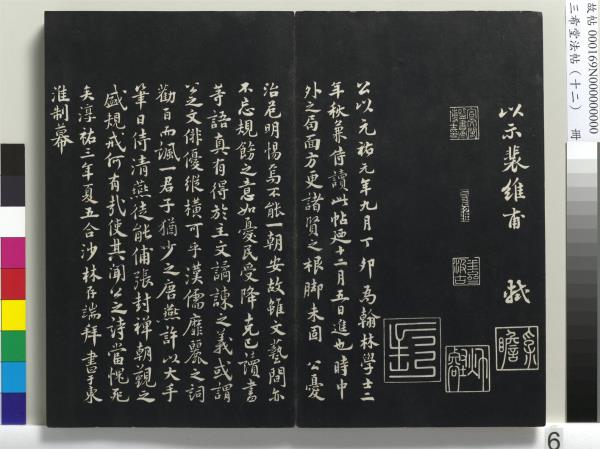 以示裴維甫 軾
公以元祐元年九月丁卯為翰林學士二
年秋兼侍讀此帖廼十二月五日進也時中
外之局面方更諸賢之根脚未固 公憂
治危明惕焉不能一朝安故雖文藝間亦
不忘規飭之意如憂民受降克己讀書
等語真有得於主文譎諫之義或謂
公之文俳優縱橫可乎漢儒靡麗之詞
勸百而諷一君子猶少之唐燕許以大手
筆日侍清燕徒能俌張封禪朝覲之
盛規戒何有哉使其聞公之詩當愧死
矣淳祐三年夏五合沙林存端拜書于東
淮制幕
故帖 000169N000000000
三希堂法帖（十二） 冊
6